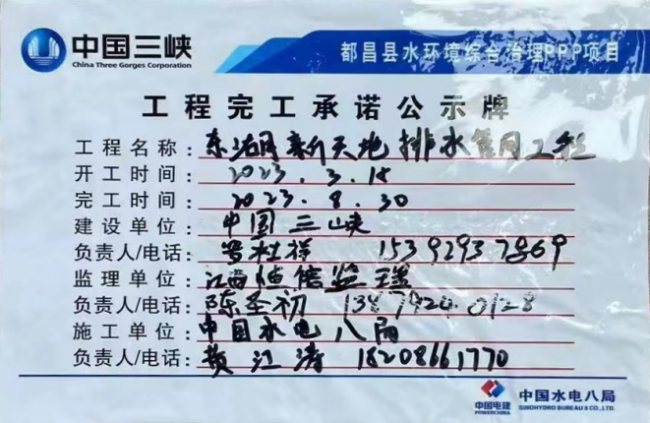 中国三峡
China Three Gorges Corporation
都昌县水环境综合治理PPP项目
工程完工承诺公示牌
工程名称：东湖新天地排水管网工程
开工时间：2023.3.15
完工时间：2023.8.30
建设单位：中国三峡
负责人/电话：祥 15392937869
监理单位：江西恒信监理
负责人/电话：陈圣初
施工单位：中国水电八局
负责人/电话：黄江涛 18208661770
中国电建 中国水电八局
POWERCHINA SINOHYDRO BUREAU 8 CO.,LTD.